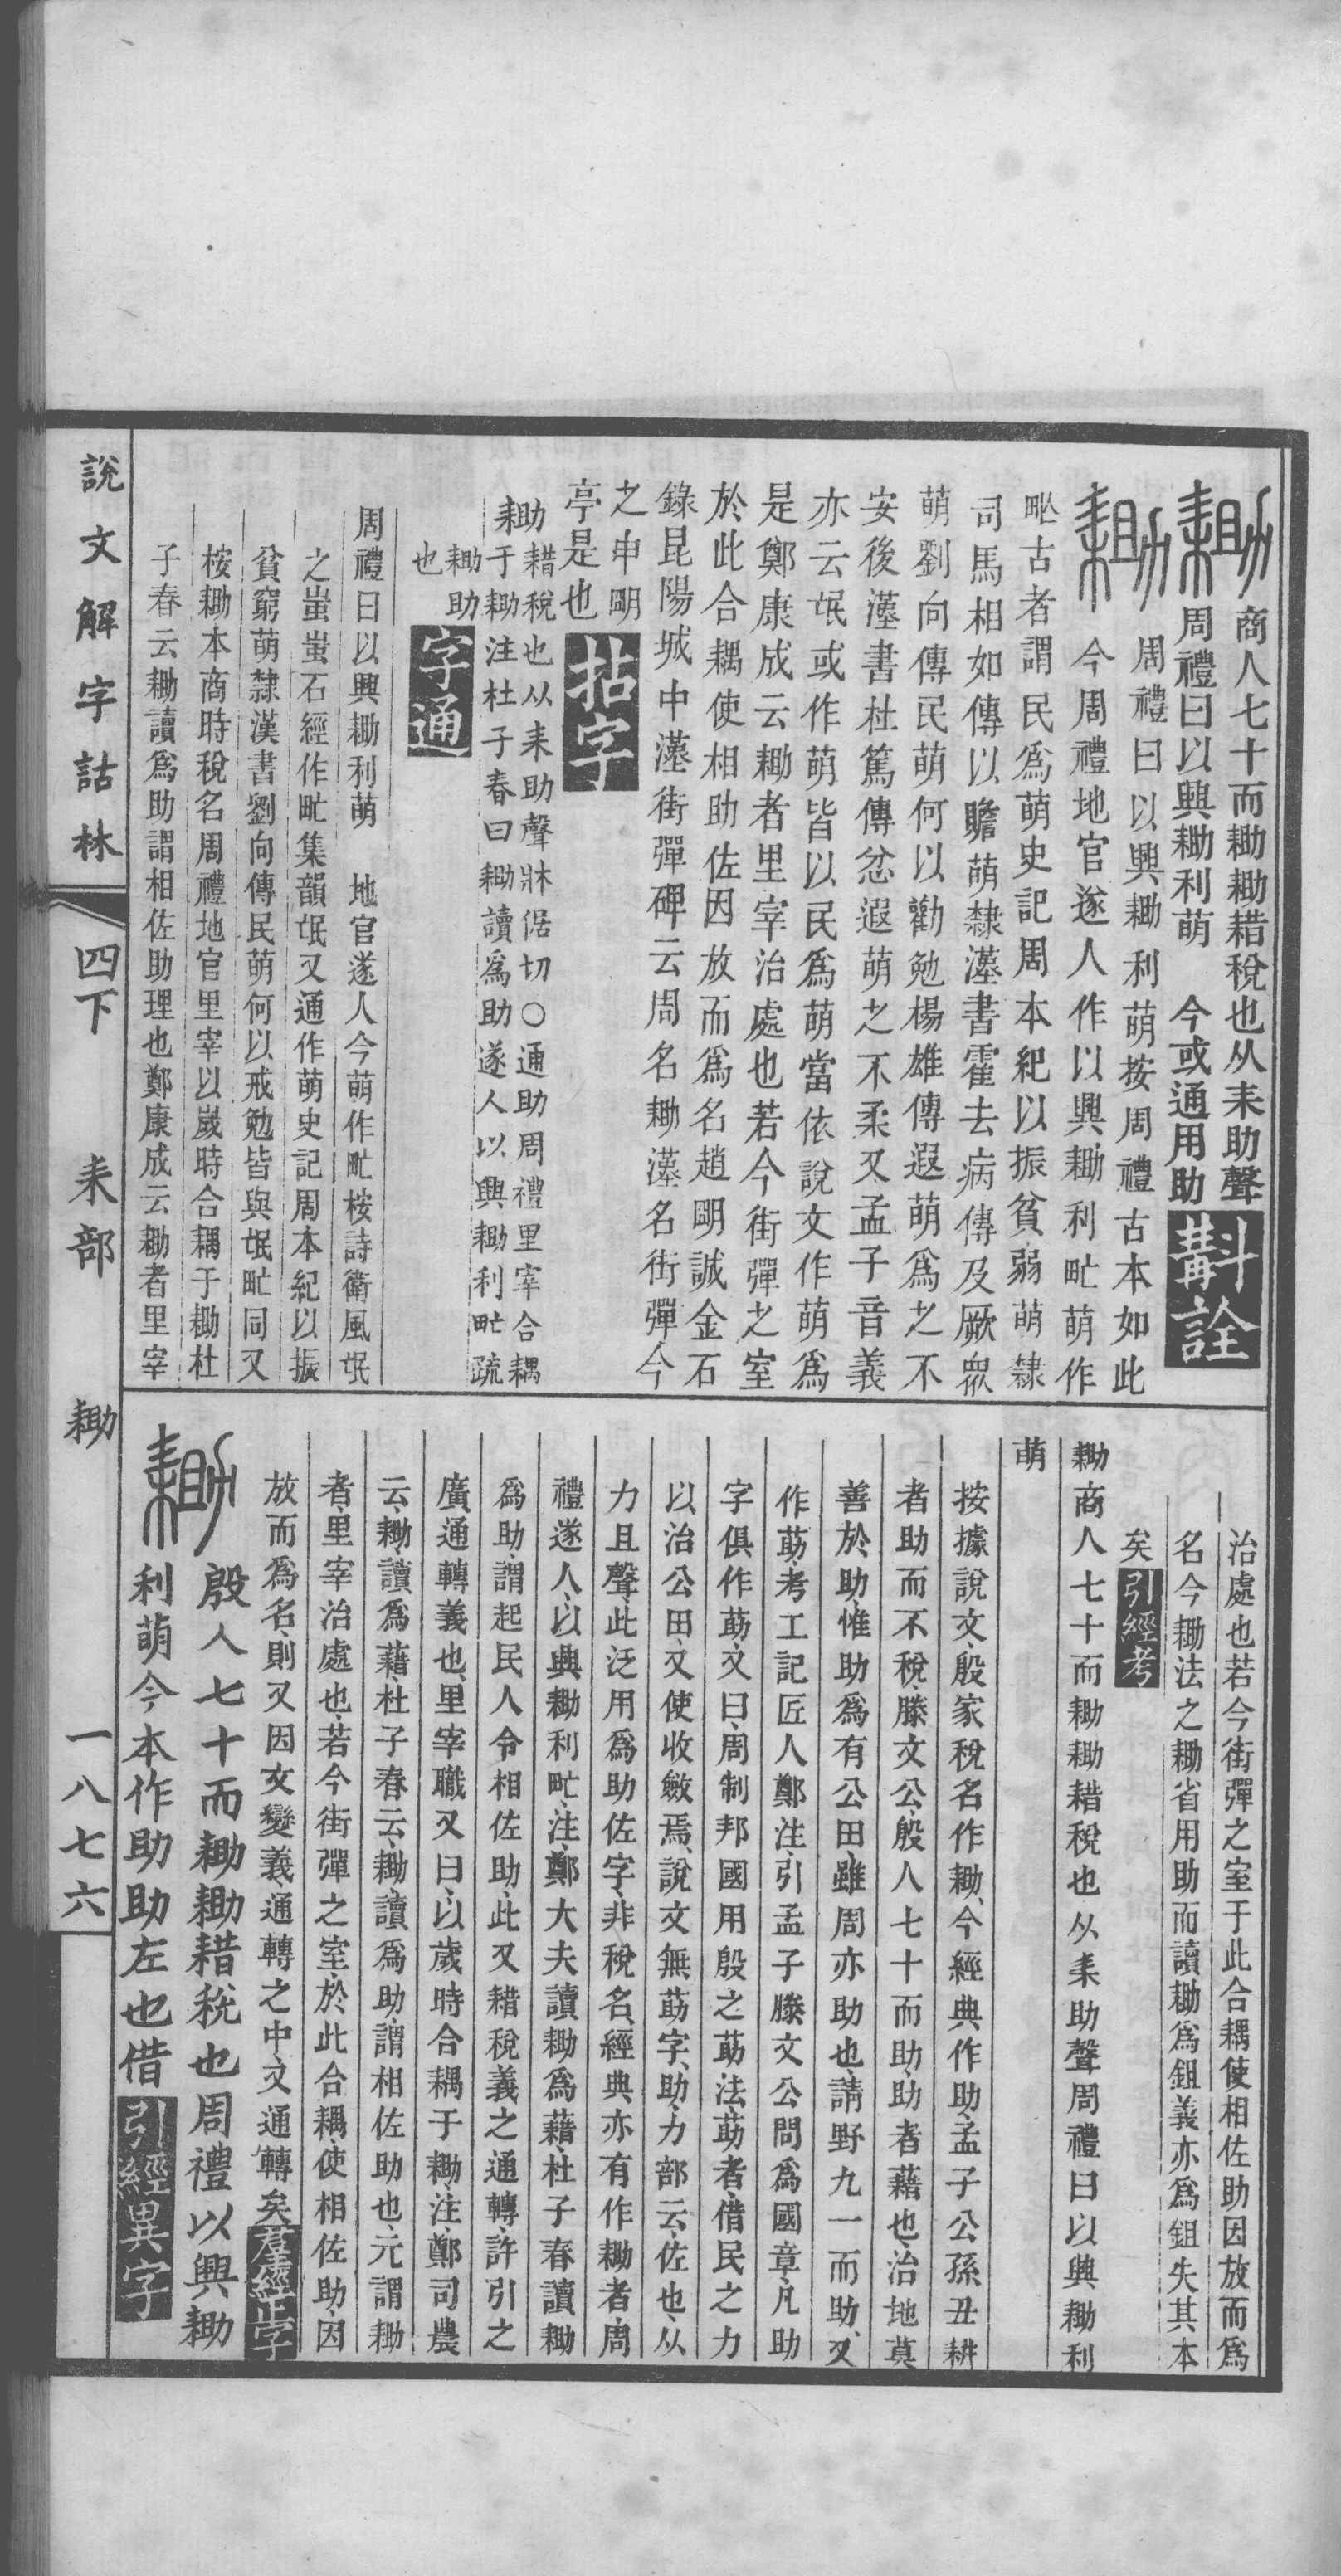 耡商人七十而耡耡耤稅也从耒助聲
周禮曰以興耡利萌　今或通用助斠詮
耡周禮曰以興耡利萌按周禮古本如此
今周禮地官遂人作以興耡利甿萌作
甿古者謂民爲萌史記周本紀以振貧弱萌隸
司馬相如傳以贍萌隸漢書霍去病傳及厥衆
萌劉向傳民萌何以勸勉楊雄傳遐萌爲之不
安後漢書杜篤傳忿遐萌之不柔又孟子音義
亦云氓或作萌皆以民爲萌當依說文作萌爲
是鄭康成云耡者里宰治處也若今街彈之室
於此合耦使相助佐因放而爲名趙明誠金石
錄昆陽城中漢街彈碑云周名耡漢名街彈今
之申明
亭是也拈字
耡耤稅也从耒助聲牀倨切○通助周禮里宰合耦
于耡注杜子春曰耡讀爲助遂人以興耡利甿疏
耡助
也字通
周禮曰以興耡利萌　地官遂人今萌作甿桉詩衞風氓
之蚩蚩石經作甿集韻氓又通作萌史記周本紀以振
貧窮萌隸漢書劉向傳民萌何以戒勉皆與氓甿同又
桉耡本商時稅名周禮地官里宰以歲時合耦于耡杜
子春云耡讀爲助謂相佐助理也鄭康成云耡者里宰
治處也若今街彈之室于此合耦使相佐助因放而爲
名今耡法之耡省用助而讀耡爲鉏義亦爲鉏失其本
矣引經考
耡商人七十而耡耡耤稅也从耒助聲周禮曰以興耡利
萌
按據說文、殷家稅名作耡、今經典作助、孟子公孫丑耕
者助而不稅、滕文公、殷人七十而助、助者藉也、治地莫
善於助、惟助爲有公田、雖周亦助也、請野九一而助、又
作莇、考工記匠人鄭注、引孟子滕文公問爲國章、凡助
字俱作莇、文曰、周制邦國用殷之莇法、莇者、借民之力
以治公田、又使收斂焉、說文無莇字、助、力部云、佐也、从
力且聲、此泛用爲助佐字、非稅名、經典亦有作耡者、周
禮遂人、以興耡利甿、注、鄭大夫讀耡爲藉、杜子春讀耡
爲助、謂起民人令相佐助、此又耤稅義之通轉、許引之
廣通轉義也、里宰職又曰、以歲時合耦于耡、注、鄭司農
云、耡、讀爲藉、杜子春云、耡、讀爲助、謂相佐助也、元謂耡
者、里宰治處也、若今街彈之室、於此合耦、使相佐助、因
放而爲名、則又因文變義、通轉之中、又通轉矣羣經正字
耡殷人七十而耡耡耤稅也周禮以興耡
利萌今本作助助左也借引經異字
說文解字詁林
四下
耒部
耡
一八七六